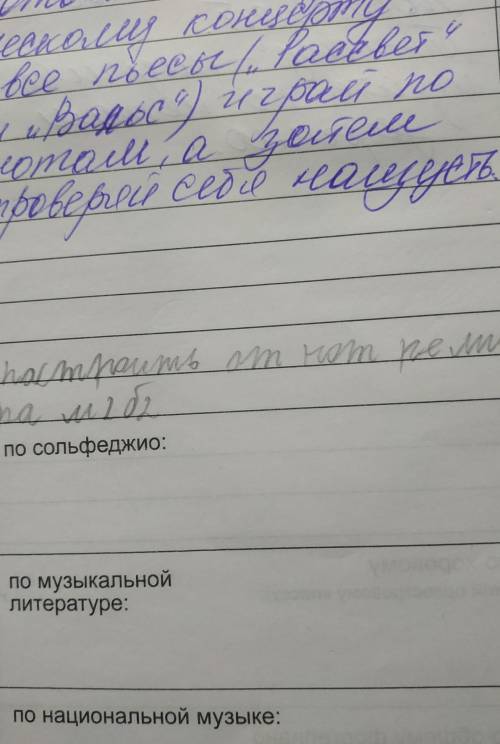 ческому концерту
все пьесы („Рассвет“
и „Вальс“) играй по
нотам, а затем
проверяй себя наизусть.
построить от нот ре ми
м2 б2
по сольфеджио:
по музыкальной
литературе:
по национальной музыке: